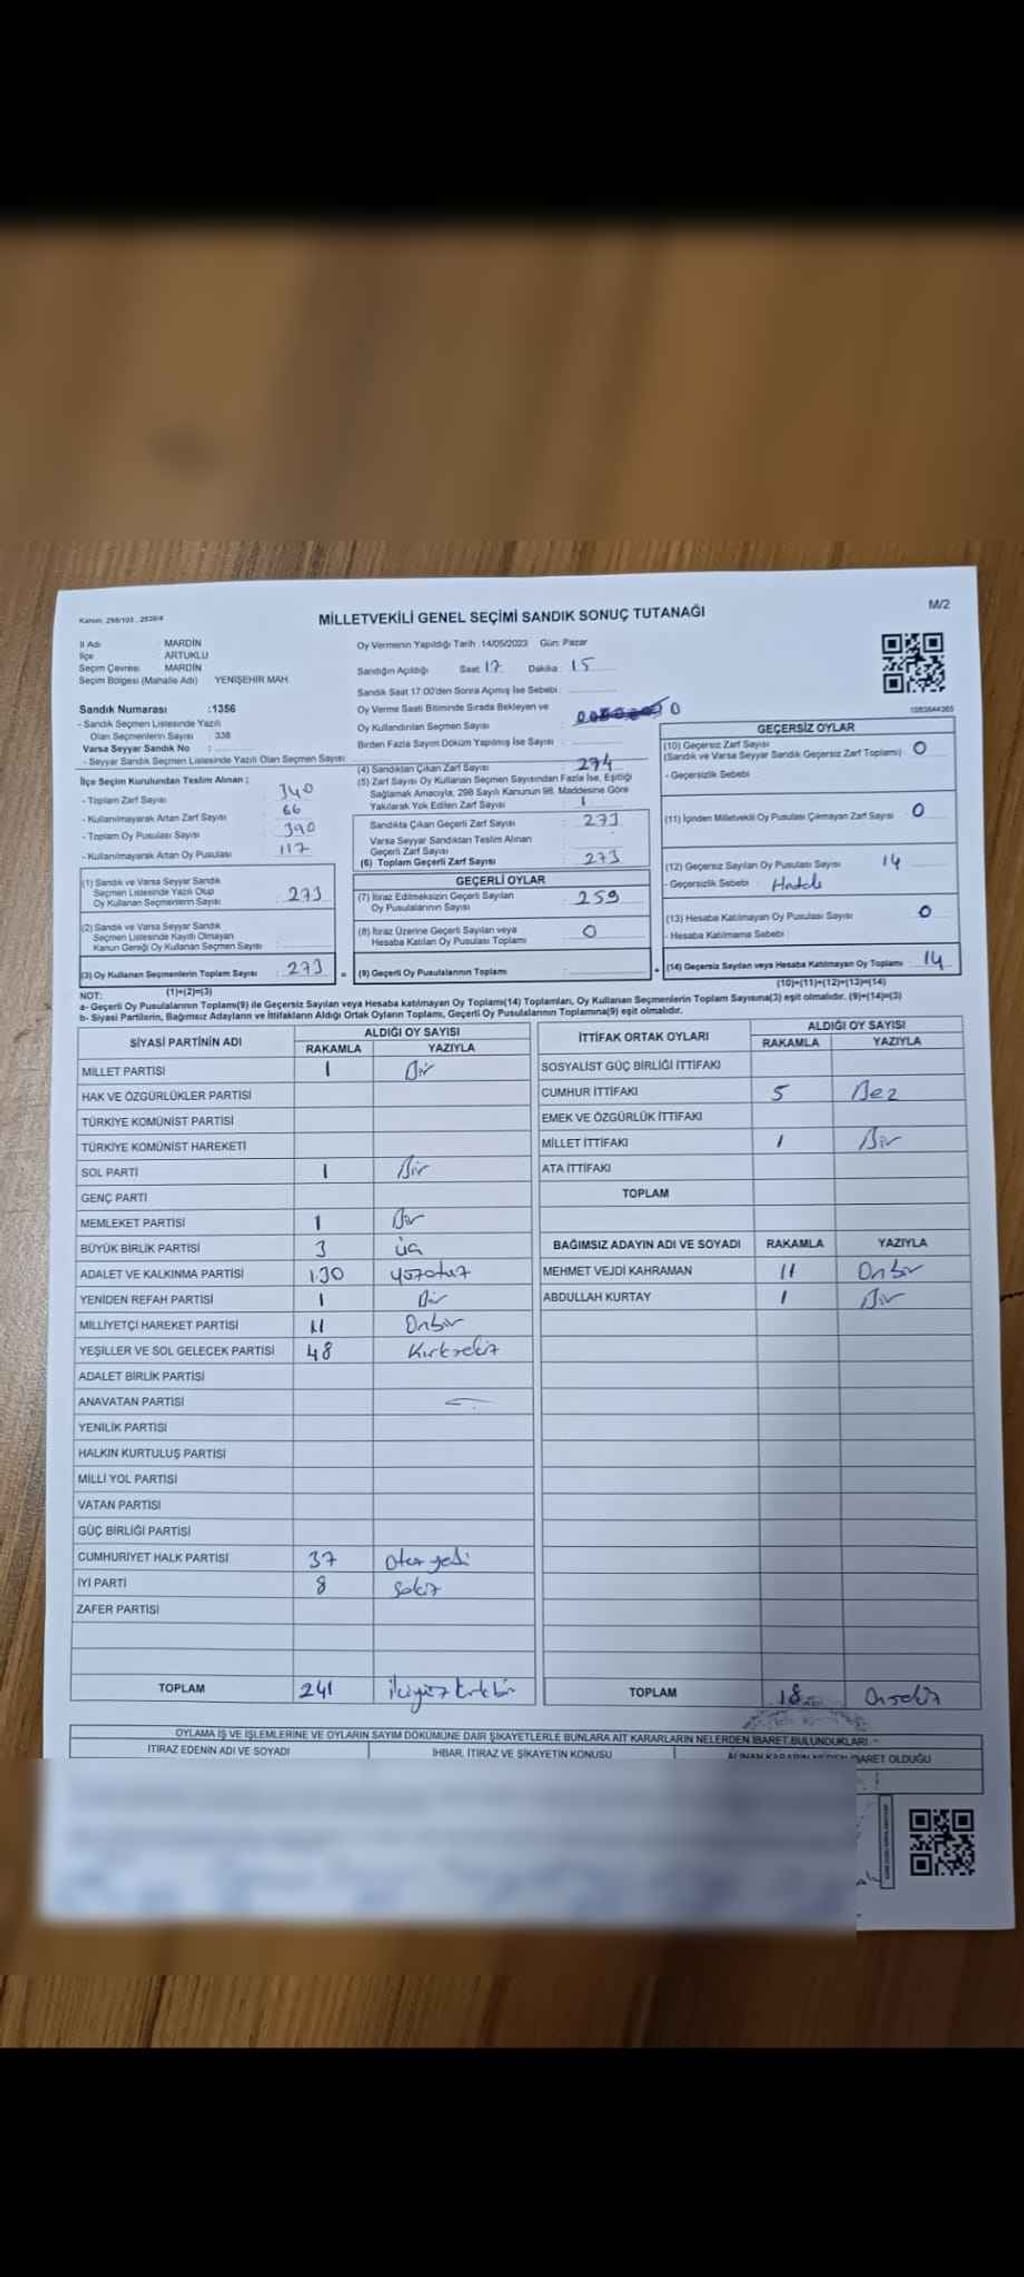 Kanun: 298/103 , 2839/4
MİLLETVEKİLİ GENEL SEÇİMİ SANDIK SONUÇ TUTANAĞI
M/2
İl Adı MARDİN
İlçe ARTUKLU
Seçim Çevresi MARDİN
Seçim Bölgesi (Mahalle Adı) YENİŞEHİR MAH.
Oy Vermenin Yapıldığı Tarih :14/05/2023 Gün: Pazar
Sandığın Açıldığı Saat: 17 Dakika: 15
Sandık Saat 17:00'den Sonra Açmış İse Sebebi:
Oy Verme Saati Bitiminde Sırada Bekleyen ve
Oy Kullandırılan Seçmen Sayısı : 0
Birden Fazla Sayım Döküm Yapılmış İse Sayısı :
Sandık Numarası :1356
- Sandık Seçmen Listesinde Yazılı
Olan Seçmenlerin Sayısı : 338
Varsa Seyyar Sandık No :
- Seyyar Sandık Seçmen Listesinde Yazılı Olan Seçmen Sayısı:
İlçe Seçim Kurulundan Teslim Alınan :
- Toplam Zarf Sayısı : 340
- Kullanılmayarak Artan Zarf Sayısı : 66
- Toplam Oy Pusulası Sayısı : 390
- Kullanılmayarak Artan Oy Pusulası : 117
(1) Sandık ve Varsa Seyyar Sandık
Seçmen Listesinde Yazılı Olup
Oy Kullanan Seçmenlerin Sayısı : 273
(2) Sandık ve Varsa Seyyar Sandık
Seçmen Listesinde Kayıtlı Olmayan
Kanun Gereği Oy Kullanan Seçmen Sayısı :
(3) Oy Kullanan Seçmenlerin Toplam Sayısı : 273
(1)+(2)=(3)
(4) Sandıktan Çıkan Zarf Sayısı : 274
(5) Zarf Sayısı Oy Kullanan Seçmen Sayısından Fazla İse, Eşitliği
Sağlamak Amacıyla, 298 Sayılı Kanunun 98. Maddesine Göre
Yakılarak Yok Edilen Zarf Sayısı : 1
Sandıkta Çıkan Geçerli Zarf Sayısı : 273
Varsa Seyyar Sandıktan Teslim Alınan
Geçerli Zarf Sayısı
(6) Toplam Geçerli Zarf Sayısı : 273
GEÇERLİ OYLAR
(7) İtiraz Edilmeksizin Geçerli Sayılan
Oy Pusulalarının Sayısı : 259
(8) İtiraz Üzerine Geçerli Sayılan veya
Hesaba Katılan Oy Pusulası Toplamı : 0
= (9) Geçerli Oy Pusulalarının Toplamı :
GEÇERSİZ OYLAR
(10) Geçersiz Zarf Sayısı
(Sandık ve Varsa Seyyar Sandık Geçersiz Zarf Toplamı) : 0
- Geçersizlik Sebebi :
(11) İçinden Milletvekili Oy Pusulası Çıkmayan Zarf Sayısı : 0
(12) Geçersiz Sayılan Oy Pusulası Sayısı : 14
- Geçersizlik Sebebi :
(13) Hesaba Katılmayan Oy Pusulası Sayısı : 0
- Hesaba Katılmama Sebebi :
+ (14) Geçersiz Sayılan veya Hesaba Katılmayan Oy Toplamı : 14
(10)+(11)+(12)+(13)=(14)
NOT:
a- Geçerli Oy Pusulalarının Toplamı(9) ile Geçersiz Sayılan veya Hesaba katılmayan Oy Toplamı(14) Toplamları, Oy Kullanan Seçmenlerin Toplam Sayısına(3) eşit olmalıdır. (9)+(14)=(3)
b- Siyasi Partilerin, Bağımsız Adayların ve İttifakların Aldığı Ortak Oyların Toplamı, Geçerli Oy Pusulalarının Toplamına(9) eşit olmalıdır.
SİYASİ PARTİNİN ADI ALDIĞI OY SAYISI
RAKAMLA YAZIYLA
MİLLET PARTİSİ 1 Bir
HAK VE ÖZGÜRLÜKLER PARTİSİ
TÜRKİYE KOMÜNİST PARTİSİ
TÜRKİYE KOMÜNİST HAREKETİ
SOL PARTİ 1 Bir
GENÇ PARTİ
MEMLEKET PARTİSİ 1 Bir
BÜYÜK BİRLİK PARTİSİ 3 üç
ADALET VE KALKINMA PARTİSİ 130 yüzotuz
YENİDEN REFAH PARTİSİ 1 Bir
MİLLİYETÇİ HAREKET PARTİSİ 11 Onbir
YEŞİLLER VE SOL GELECEK PARTİSİ 48 Kırksekiz
ADALET BİRLİK PARTİSİ
ANAVATAN PARTİSİ
YENİLİK PARTİSİ
HALKIN KURTULUŞ PARTİSİ
MİLLİ YOL PARTİSİ
VATAN PARTİSİ
GÜÇ BİRLİĞİ PARTİSİ
CUMHURİYET HALK PARTİSİ 37 otuz yedi
İYİ PARTİ 8 sekiz
ZAFER PARTİSİ
TOPLAM 241 ikiyüz kırkbir
İTTİFAK ORTAK OYLARI ALDIĞI OY SAYISI
RAKAMLA YAZIYLA
SOSYALİST GÜÇ BİRLİĞİ İTTİFAKI
CUMHUR İTTİFAKI 5 Beş
EMEK VE ÖZGÜRLÜK İTTİFAKI
MİLLET İTTİFAKI 1 Bir
ATA İTTİFAKI
TOPLAM
BAĞIMSIZ ADAYIN ADI VE SOYADI RAKAMLA YAZIYLA
MEHMET VEJDİ KAHRAMAN 11 Onbir
ABDULLAH KURTAY 1 Bir
TOPLAM 18 Onsekiz
OYLAMA İŞ VE İŞLEMLERİNE VE OYLARIN SAYIM DÖKÜMÜNE DAİR ŞİKAYETLERLE BUNLARA AİT KARARLARIN NELERDEN İBARET BULUNDUKLARI
İTİRAZ EDENİN ADI VE SOYADI İHBAR, İTİRAZ VE ŞİKAYETİN KONUSU ALINAN KARARIN NEDEN İBARET OLDUĞU